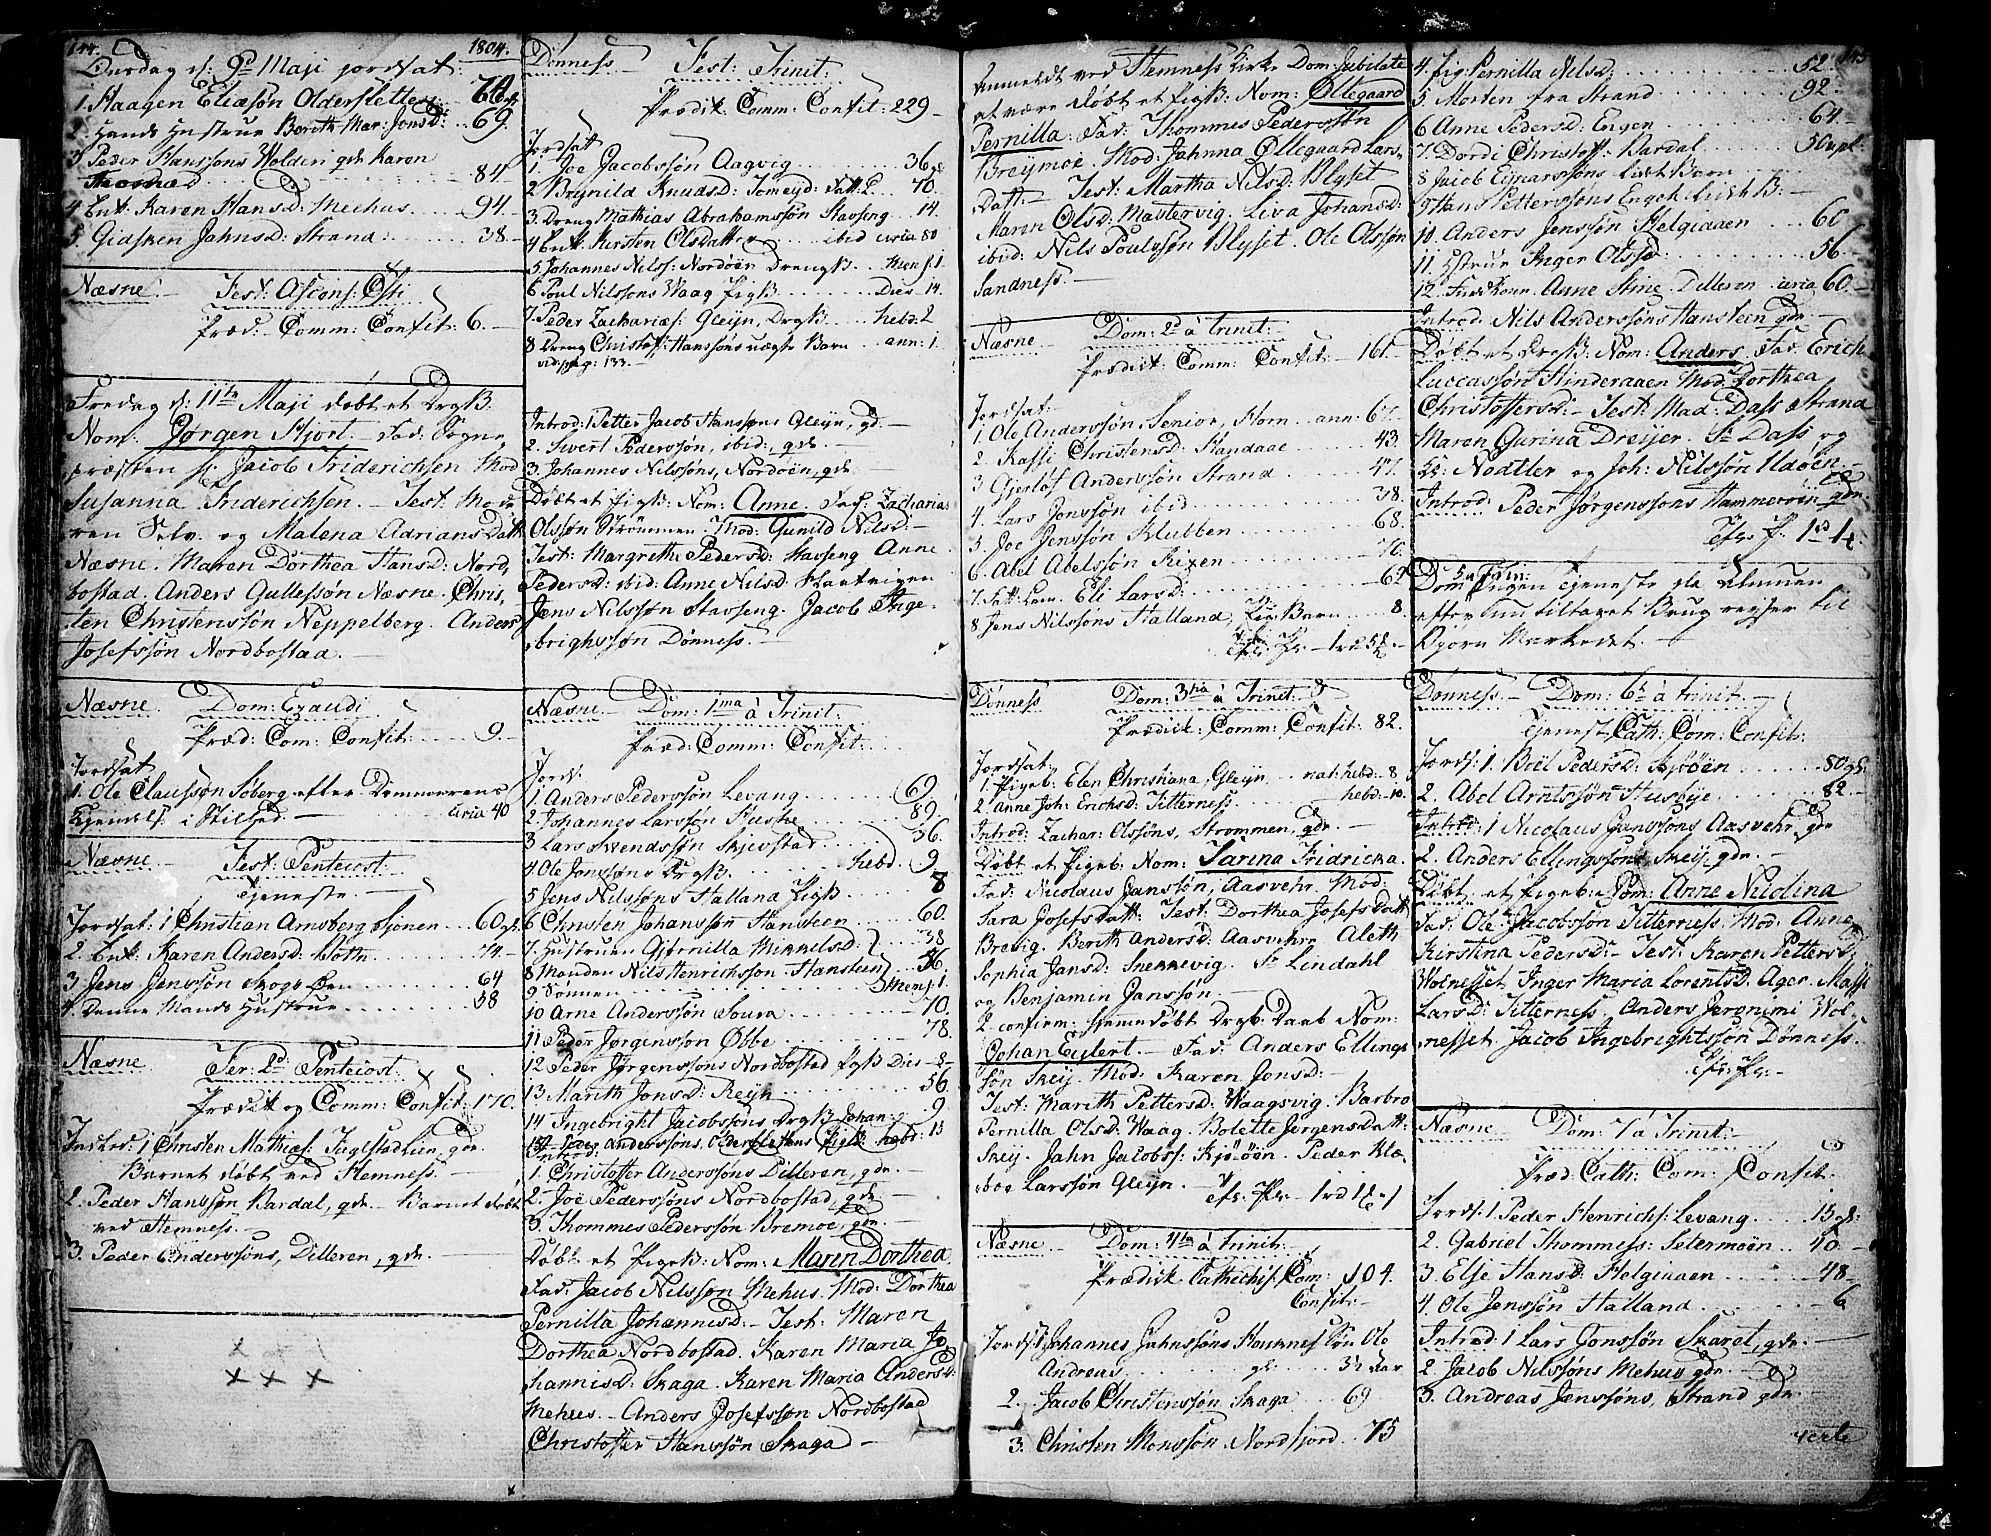 144. 1804.
Onsdag d: 9de Maji jordsat:
1. Haagen Eliæsøn Oldersletten 70
2. Hands Hustrue Berith Mar: Jonsd: 69.
3 Peder Hanssøns Volden gde Karen
84
4 Enk: Karen Hansd: Meehus 94.
5. Gidsken Jahnsd: Strand 38
Næsne Fest: Ascens: Xsti
Præd: Comm: Confit: 6.
Fredag d: 11te Maji døbt et DrgB.
Nom: Jørgen Hjort. Fad: Sogne
præsten Hr Jacob Friderichsen Mod
Susanna Friderichsen. Test: Mode
ren Selv. og Malena Adrians Datt
Næsne. Maren Dorthea Hansd: Nord,
bostad. Anders Gullessøn Næsne. Chris,
ten Christenssøn Neppelberg. Anders
Josefsøn Nordbostad.
Næsne Dom: Exaudi
Præd: Com: Confit: 9.
Jordsat
1. Ole Claussøn Søberg efter Dommerens
Kjendelse i Stilhed. circa 40
Næsne Fest: Penteiost:
Tjeneste
Jordsat: 1 Christian Arnsberg Sjonen 60 gl
2. Enk: Karen Andersd: 74.
3 Jens Jenssøn Skogs Øen 64
4. Denne Mands Hustrue 58
Næsne Fer: 2d: Penteiost:
Prædik og Comm: Confit: 170.
Introd: 1 Christen Mathiæs: Fagelstadlien, gde.
Barnet døbt ved Hemness.
2. Peder Hanssøn Bardal, gde Barnet døbt
ved Hemness.
3. Peder Anderssøns, Dilleren, gde.
Dønness Fest: Trinit:
Prædik: Comm: Confit: 229
Jordsat
1. Joe Jacobssøn Aagvig 36 gl
2 Brynild Knudsd: Fatt: 70.
3. Dreng Mathias Abrahamssøn Stavseng 14.
4 Enk: Kirsten Olsdatter ibid circa 80
5 Johannes Nilss: Nordøen DrengB. Mens. 1.
6 Poul Nilssøns Waag PigB. Dies. 14.
7. Peder Zachariæs: Gleyn, DrgB. hebd: 2
8 Dreng Christoff: Hanssøns uægte Barn ann: 1.
vid pag: 133.
Introd: 1. Petter Jacob Hanssøns Gleyn, gd.
2. Sivert Pederssøn, ibid: gde.
3. Johannes Nilssøns, Nordøen, gde
Døbt et PigB: Nom: Anne Fad: Zacharias
Olssøn Strømmen Mod: Gunild Nilsd:
Test: Margrethe Pedersd: Stavseng Anne
Pedersd: ibid: Anne Nilsd:
Jens Nilssøn Stavseng. Jacob Inge,
brightssøn Dønness.
Næsne Dom: 1ma à Trinit:
Præd: Comm: Confit:
Jords:
1. Anders Pederssøn Levang 69.
2. Johannes Larssøn Husbye 89.
3 Lars Svendssøn Skjevstad 36.
4. Ole Jonssøns DrgB. hebd. 9
5 Jens Nilssøns Halland PigB 8
6 Christen Johanssøn Hansteen 60.
7 Hustruen Gjernilla Mikkelsd: 38
8 Manden Nils Henrichsson Hansteen 36
9 Sønnen Mens. 1.
10 Arne Anderssøn Soura 70.
11 Peder Jørgenssøn Øbbe 78.
12 Peder Jørgenssøns Nordbostad PgB Dies 8
13 Marith Jonsd: Reyn 56.
14 Ingebright Jacobssøns DrgB Johan 9
15 Peder Anderssøns, Olderslettens PigB. hebd: 13
Introd:
1. Christoffer Anderssøns Dilleren, gde.
2. Joe Pederssøns Nordbostad, gde
3. Thommes Pederssøn Bremoe, gde.
Døbt et PigeB: Nom: Maren Dorthea
Fad: Jacob Nilssøn Mehus. Mod: Dorthea
Pernilla Johannisd: Test: Maren
Dorthea Nordbostad. Karen Maria Jo,
hannisd: Skaga. Karen Maria Andersd:
Mehus. Anders Josefssøn Nordbostad
Christoffer Hanssøn Skaga
Anmeldt ved Hemness Kirke Dom: Jubilate
at være døbt et PigB: Nom: Øllegaard
Pernilla: Fad: Thommes Pederssøn
Breymoe. Mod: Jahnna Øllegaard Lars,
Datt. Test: Martha Nilsd: Blyset
Maren Olsd: Mastervig. Liva Johansd:
ibid: Nils Poulssøn Blyset. Ole Olssøn
Sandness.
Næsne Dom: 2d à Trinit:
Prædik: Comm: Confit: 161.
Jordsat:
1. Ole Anderssøn, Senior, Horn ann: 67.
2 Kassi Christensd: Randaae 43.
3 Gjerløf Anderssøn Strand 47.
4. Lars Jonssøn ibid 38.
5. Joe Jenssøn Klubben 68.
6. Abel Abelssøn Rixen 70.
7. Fatt: Lem. Eli Larsd: 69
8 Jens Nilssøns Halland, Barn 8
Dønness Dom: 3tia à Trinit:
Prædik: Comm: Confit: 82.
Jordsat
1. Pigeb. Elen Christiana, Gleyn nat: hebd: 8
2 Anne Joh: Ericksd: Titterness. hebd: 10.
Introd: Zachar: Olssøns, Strømmen, gde.
Døbt et Pigeb. Nom: Sarina Fridricka.
Fad: Nicolaus Janssøn, Aasvehr. Mod:
Sara Josefsdatt: Test: Dorthea Josefs Datt
Brevig. Berith Andersd: Aasvehr. Aleth
Sophia Jansd: Snekkevig. Sr Lindahl
og Benjamin Janssøn.
2 confirm: hjemmedøbt Drgb: Daab Nom:
Johan Eylert. Fad: Anders Ellings
søn Skey. Mod: Karen Jonsd:
Test: Marith Pettersd: Waagsvig. Barbro
Pernilla Olsd: Waag. Bolette Jørgensdatt:
Skey. Jahn Jacobss: Kjøtøen. Peder Klæ,
boe Larssøn Gleyn.
Næsne Dom: 4ta à Trinit:
Prædik: Cathechis: Com: 104.
Confit:
Jords: 1. Johannes Jahnssøns Søn Ole
Andreas gl: 3½ Aar
2. Jacob Christenssøn Skaga 69
3. Christen Monssøn Nordfjord 75
145
4. Pig: Pernilla Nilsd: 52
5. Morten fra Strand 92.
6 Anne Pedersd: Engen 64
7. Dordi Christoff: Bardal 50 apl
8 Jacob Ejnarssøns LiikBarn
9 Hans Petterssøns Engen LiikB:
10. Anders Jenssøn Helgiaaen 60
11 Hstrue Inger Olsd 56
12. Anne Stine. Dilleren circa 60
Introd: Nils Anderssøns Hansteen gde
Døbt et DrgB: Nom: Anders. Fad: Erich
Luccassøn Hinderaaen Mod: Dorthea
Christoffersd: Test: Mad: Dass Strand
Maren Gurina Dreyer. Sr Dass og
Sr: Nodtler og Joh: Nilssøn Udøen
Introd: Peder Jørgenssøns Hammerøen gde
Dom: 5 a Trin: Ingen Tjeneste da Almuen
efter Brug reyser til
Bjørn Markedet.
Dønness. Dom: 6t à Trinit.
Tjenest, Cath: Com: Confit:
Jords: 1. Beël Pedersd: Kjøtøen 80 gl:
2. Abel Arntssøn Husbye 82
Introd: 1 Nicolaus Janssøns Aasvehr, gde
2. Anders Ellingssøns Skey gde.
Døbt: et Pigeb: Nom: Anne Nicolina
Fad: Ole Jacobssøn Titterness. Mod: Anne
Kirstina Pedersd: Test: Karen Pettersd
Wolnesset Inger Maria Lorentsd: Ager. Massi
Larsd: Titterness. Anders Jeronimi Wol,
nesset. Jacob Ingebrightssøn Dønness.
Næsne Dom: 7 à Trinit:
Præd: Cath: Com: Confit
Jords: 1 Peder Henrichs: Levang 15 gl:
2. Gabriel Thommess: Setermoen 40.
3. Else Hansd: Helgiaaen 48
4. Ole Jenssøn Halland 6
Introd: 1 Lars Jonssøn Skaret, gde.
2 Jacob Nilssøns Mehus gde
3. Andreas Jenssøns, Strand gde.
verte